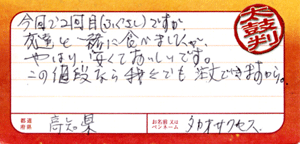 今回で2回目(ふくさし)ですが、
友達と一緒に食べましたが、
やはり、安くておいしいです。
この値段なら 誰でも注文できますから。
太鼓判
都道府県
高知県
お名前又はペンネーム
タカオサクセス